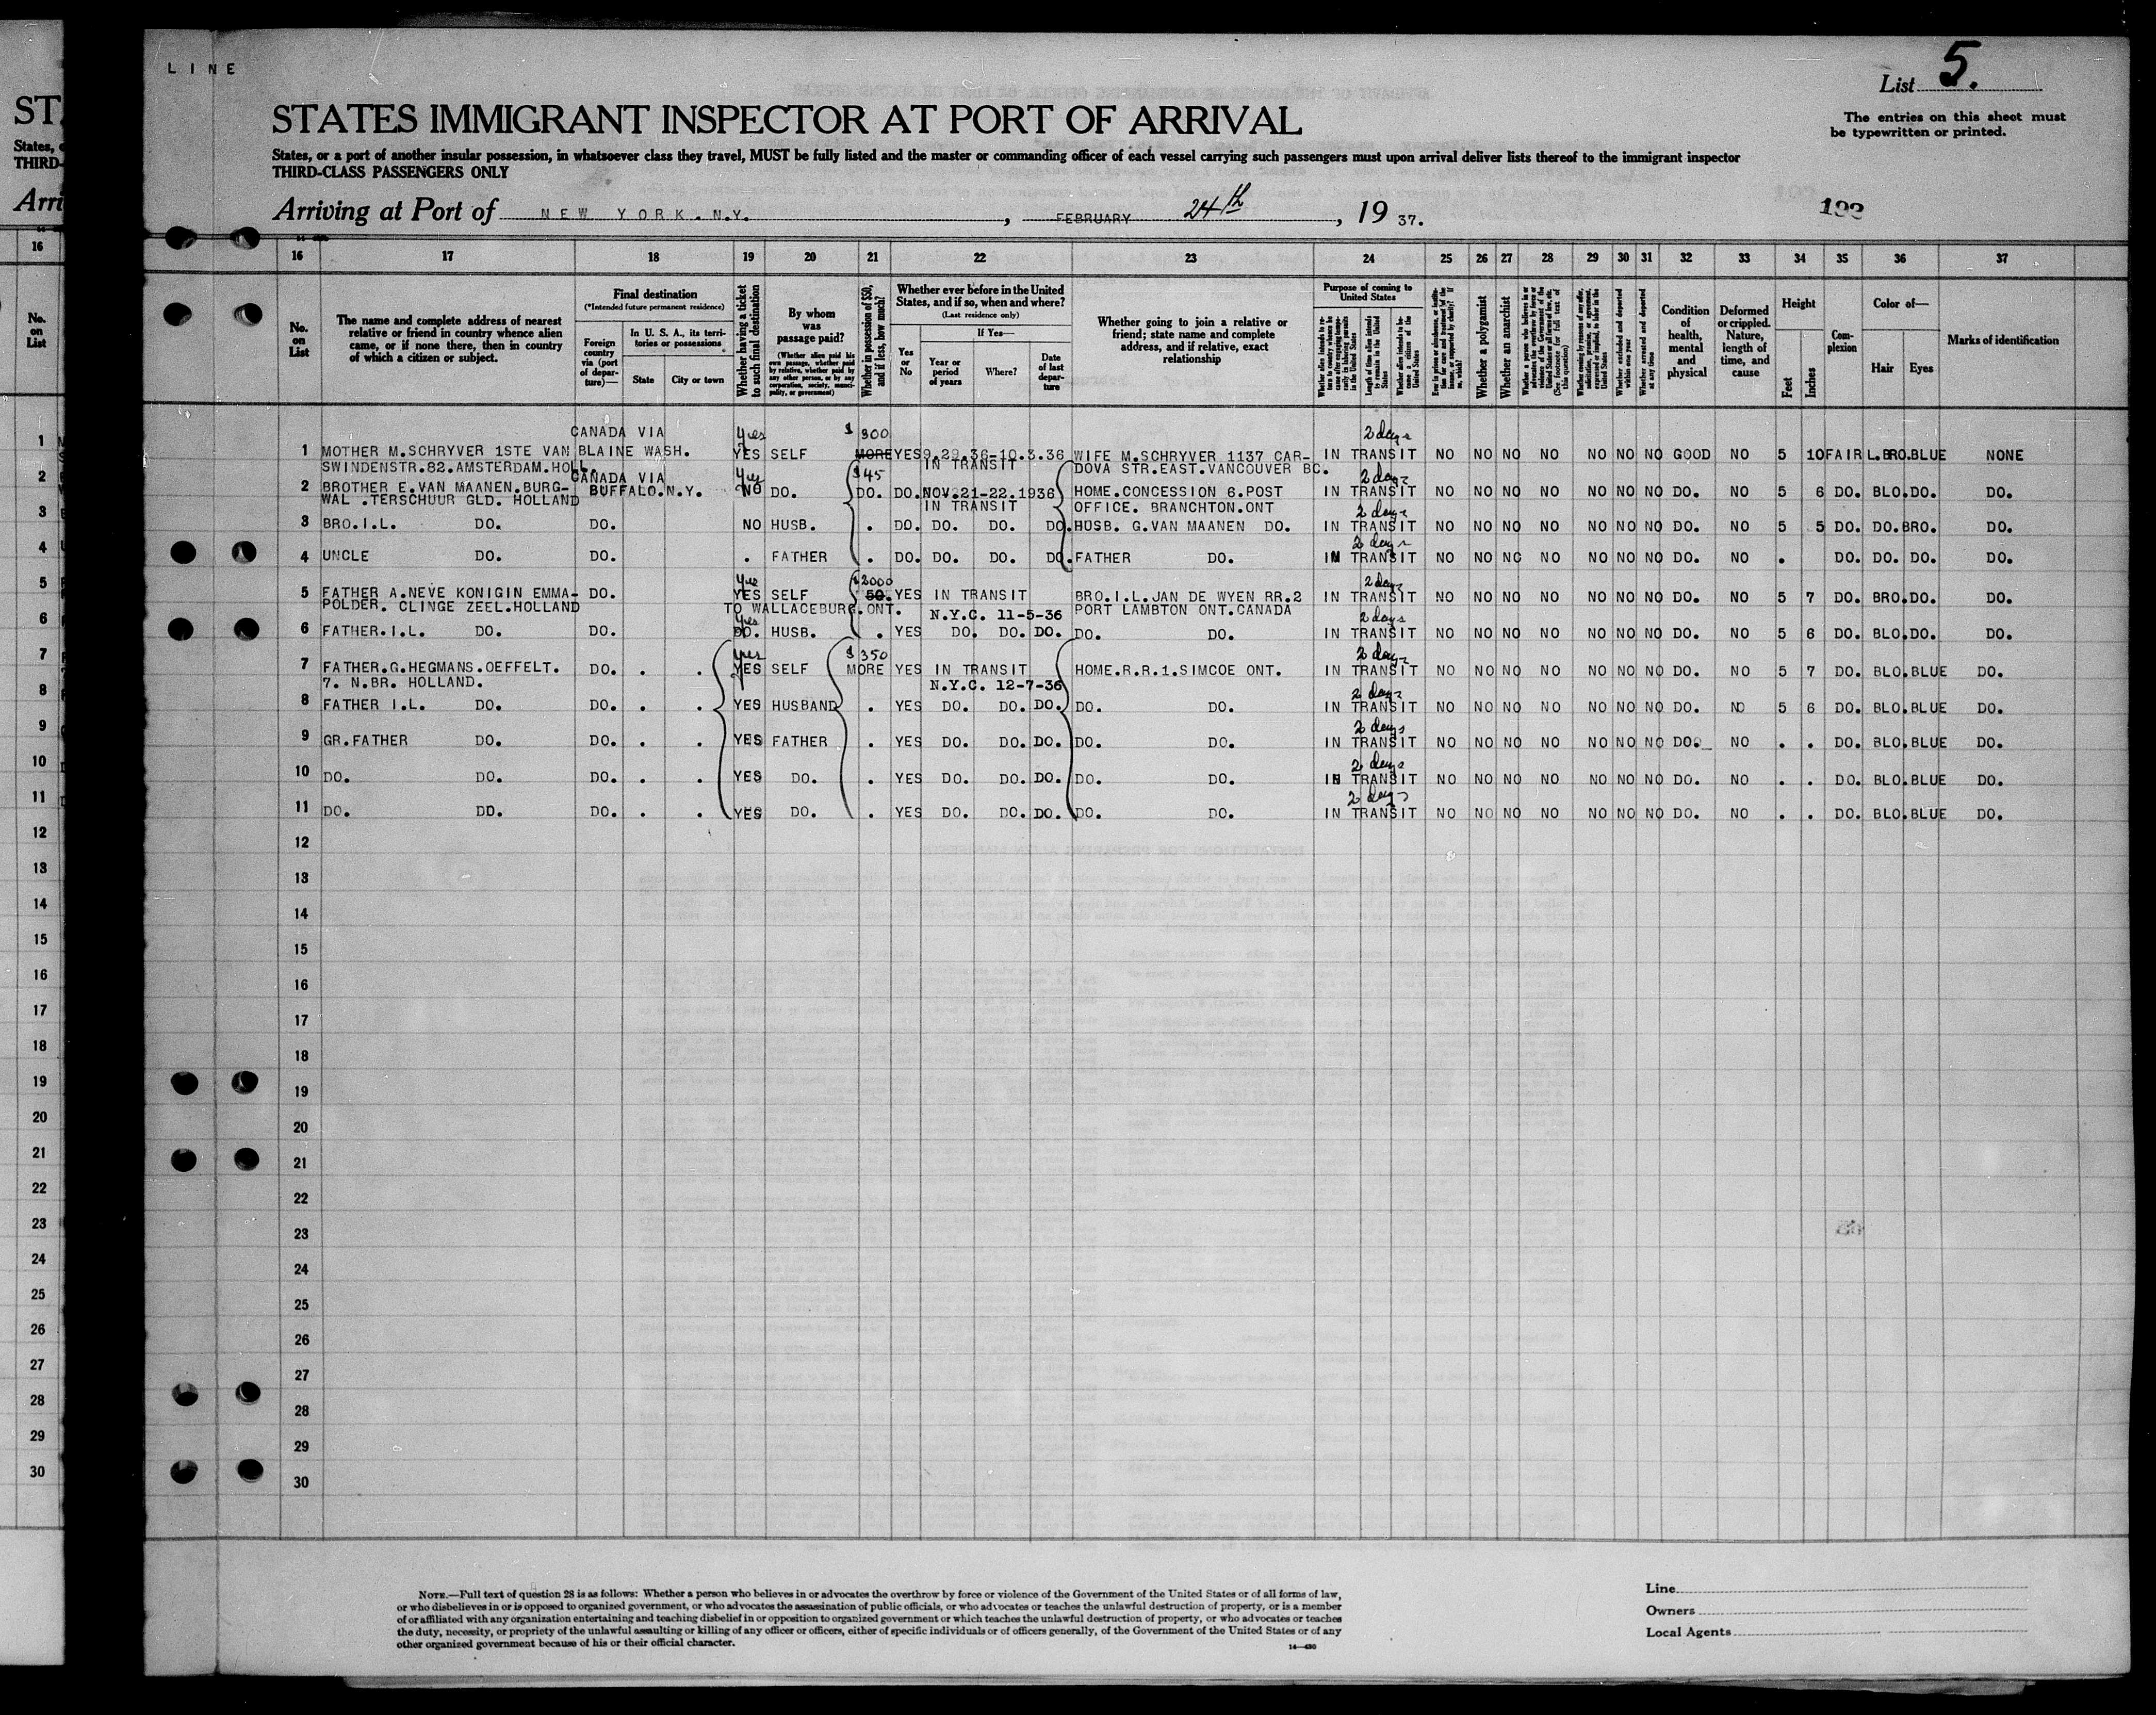 LINE
List 5.
STATES IMMIGRANT INSPECTOR AT PORT OF ARRIVAL
The entries on this sheet must
be typewritten or printed.
States, or a port of another insular possession, in whatsoever class they travel, MUST be fully listed and the master or commanding officer of each vessel carrying such passengers must upon arrival deliver lists thereof to the immigrant inspector
THIRD-CLASS PASSENGERS ONLY
Arriving at Port of NEW YORK.N.Y. , FEBRUARY 24th , 19 37.
16 17 18 19 20 21 22 23 24 25 26 27 28 29 30 31 32 33 34 35 36 37
No. on List
The name and complete address of nearest relative or friend in country whence alien came, or if none there, then in country of which a citizen or subject.
Final destination
(*Intended future permanent residence)
Foreign country via (port of departure)—
In U. S. A., its territories or possessions
State City or town
Whether having a ticket to such final destination
By whom was passage paid?
(Whether alien paid his own passage, whether paid by relative, whether paid by any other person, or by any corporation, society, municipality, or government)
Whether in possession of $50, and if less, how much?
Whether ever before in the United States, and if so, when and where?
(Last residence only)
Yes or No
If Yes—
Year or period of years
Where?
Date of last departure
Whether going to join a relative or friend; state name and complete address, and if relative, exact relationship
Purpose of coming to United States
Length of time alien intends to remain in the United States
Whether a polygamist
Whether an anarchist
Whether excluded and deported within one year
Whether arrested and deported at any time
Condition of health, mental and physical
Deformed or crippled. Nature, length of time, and cause
Height
Feet Inches
Complexion
Color of—
Hair Eyes
Marks of identification
CANADA VIA yes $ 300 2 days
1 MOTHER M.SCHRYVER 1STE VAN BLAINE WASH. YES SELF MORE YES 9.29.36-10.3.36 WIFE M.SCHRYVER 1137 CAR- IN TRANSIT NO NO NO NO NO NO NO GOOD NO 5 10 FAIR L.BRO. BLUE NONE
SWINDENSTR.82.AMSTERDAM.HOLL. IN TRANSIT DOVA STR.EAST.VANCOUVER BC.
CANADA VIA yes $45 2 days
2 BROTHER E.VAN MAANEN.BURG- BUFFALO.N.Y. NO DO. DO. DO. NOV.21-22.1936 HOME.CONCESSION 6.POST IN TRANSIT NO NO NO NO NO NO NO DO. NO 5 6 DO. BLO. DO. DO.
WAL .TERSCHUUR GLD. HOLLAND IN TRANSIT OFFICE. BRANCHTON.ONT 2 days
3 BRO.I.L. DO. DO. NO HUSB. . DO. DO. DO. DO. HUSB. G.VAN MAANEN DO. IN TRANSIT NO NO NO NO NO NO NO DO. NO 5 5 DO. DO. BRO. DO.
2 days
4 UNCLE DO. DO. . FATHER . DO. DO. DO. DO. FATHER DO. IN TRANSIT NO NO NO NO NO NO NO DO. NO . DO. DO. DO. DO.
yes $2000 2 days
5 FATHER A.NEVE KONIGIN EMMA- DO. YES SELF 50. YES IN TRANSIT BRO.I.L.JAN DE WYEN RR.2 IN TRANSIT NO NO NO NO NO NO NO DO. NO 5 7 DO. BRO. DO. DO.
POLDER. CLINGE ZEEL.HOLLAND TO WALLACEBURG.ONT. N.Y.C. 11-5-36 PORT LAMBTON ONT.CANADA
yes 2 days
6 FATHER.I.L. DO. DO. DO. HUSB. . YES DO. DO. DO. DO. DO. IN TRANSIT NO NO NO NO NO NO NO DO. NO 5 6 DO. BLO. DO. DO.
yes $ 350 2 days
7 FATHER.G.HEGMANS.OEFFELT. DO. . . YES SELF MORE YES IN TRANSIT HOME.R.R.1.SIMCOE ONT. IN TRANSIT NO NO NO NO NO NO NO DO. NO 5 7 DO. BLO. BLUE DO.
7. N.BR. HOLLAND. N.Y.C. 12-7-36
2 days
8 FATHER I.L. DO. DO. . . YES HUSBAND . YES DO. DO. DO. DO. DO. IN TRANSIT NO NO NO NO NO NO NO DO. NO 5 6 DO. BLO. BLUE DO.
2 days
9 GR.FATHER DO. DO. . . YES FATHER . YES DO. DO. DO. DO. DO. IN TRANSIT NO NO NO NO NO NO NO DO. NO . . DO. BLO. BLUE DO.
2 days
10 DO. DO. DO. . . YES DO. . YES DO. DO. DO. DO. DO. IN TRANSIT NO NO NO NO NO NO NO DO. NO . . DO. BLO. BLUE DO.
2 days
11 DO. DO. DO. . . YES DO. . YES DO. DO. DO. DO. DO. IN TRANSIT NO NO NO NO NO NO NO DO. NO . . DO. BLO. BLUE DO.
12
13
14
15
16
17
18
19
20
21
22
23
24
25
26
27
28
29
30
NOTE.—Full text of question 28 is as follows: Whether a person who believes in or advocates the overthrow by force or violence of the Government of the United States or of all forms of law,
or who disbelieves in or is opposed to organized government, or who advocates the assassination of public officials, or who advocates or teaches the unlawful destruction of property, or is a member
of or affiliated with any organization entertaining and teaching disbelief in or opposition to organized government or which teaches the unlawful destruction of property, or who advocates or teaches
the duty, necessity, or propriety of the unlawful assaulting or killing of any officer or officers, either of specific individuals or of officers generally, of the Government of the United States or of any
other organized government because of his or their official character.
14—430
Line
Owners
Local Agents